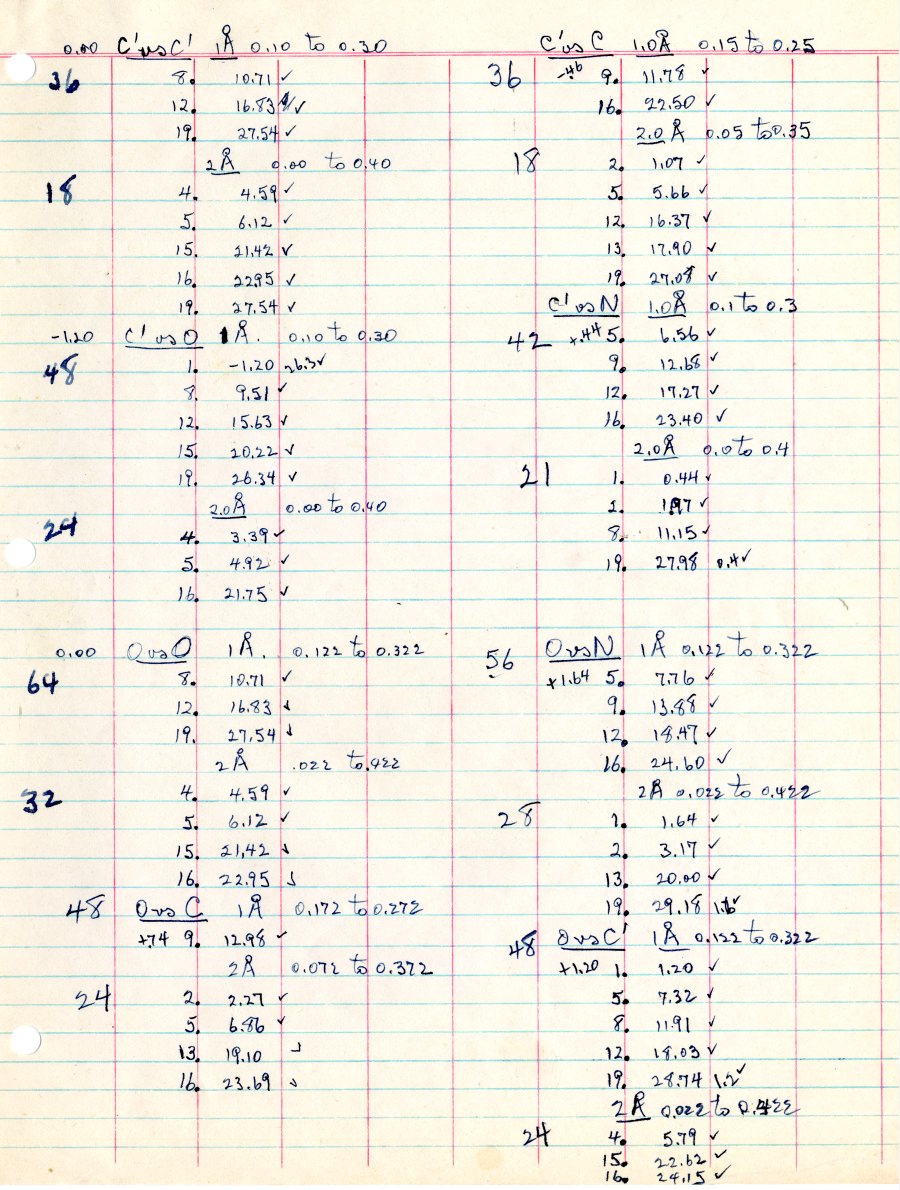 0.00 C' vs C' 1Å 0.10 to 0.30
36 8. 10.71 ✓
12. 16.83 ✓
19. 27.54 ✓
2Å 0.00 to 0.40
18 4. 4.59 ✓
5. 6.12 ✓
15. 21.42 ✓
16. 22.95 ✓
19. 27.54 ✓
-1.20 C' vs O 1Å. 0.10 to 0.30
48 1. -1.20 26.3 ✓
8. 9.51 ✓
12. 15.63 ✓
15. 20.22 ✓
19. 26.34 ✓
2.0Å 0.00 to 0.40
24 4. 3.39 ✓
5. 4.92 ✓
16. 21.75 ✓
0.00 O vs O 1Å. 0.122 to 0.322
64 8. 10.71 ✓
12. 16.83 ✓
19. 27.54 ✓
2Å .022 to .422
32 4. 4.59 ✓
5. 6.12 ✓
15. 21.42 ✓
16. 22.95 ✓
48 O vs C 1Å 0.172 to 0.272
+.74 9. 12.98 ✓
2Å 0.072 to 0.372
24 2. 2.27 ✓
5. 6.86 ✓
13. 19.10 ✓
16. 23.69 ✓
C' vs C 1.0Å 0.15 to 0.25
36 -.46 9. 11.78 ✓
16. 22.50 ✓
2.0Å 0.05 to 0.35
18 2. 1.07 ✓
5. 5.66 ✓
12. 16.37 ✓
13. 17.90 ✓
19. 27.08 ✓
C' vs N 1.0Å 0.1 to 0.3
42 +.44 5. 6.56 ✓
9. 12.68 ✓
12. 17.27 ✓
16. 23.40 ✓
2.0Å 0.0 to 0.4
21 1. 0.44 ✓
2. 1.97 ✓
8. 11.15 ✓
19. 27.98 0.4 ✓
56 O vs N 1Å 0.122 to 0.322
+1.64 5. 7.76 ✓
9. 13.88 ✓
12. 18.47 ✓
16. 24.60 ✓
2Å 0.022 to 0.422
28 1. 1.64 ✓
2. 3.17 ✓
13. 20.00 ✓
19. 29.18 1.6 ✓
48 O vs C' 1Å 0.122 to 0.322
+1.20 1. 1.20 ✓
5. 7.32 ✓
8. 11.91 ✓
12. 18.03 ✓
19. 28.74 1.2 ✓
2Å 0.022 to 0.422
24 4. 5.79 ✓
15. 22.62 ✓
16. 24.15 ✓